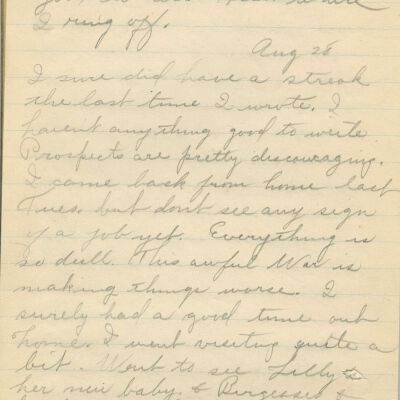 I ring off.
Aug 28
I sure did have a streak
the last time I wrote. I
havent anything good to write
Prospects are pretty discouraging.
I came back from home last
Tues. but dont see any sign
of a job yet. Everything is
so dull. This awful War is
making things worse. I
surely had a good time out
home. I went visiting quite a
bit. Went to see Lilly &
her new baby. & Burgesses &